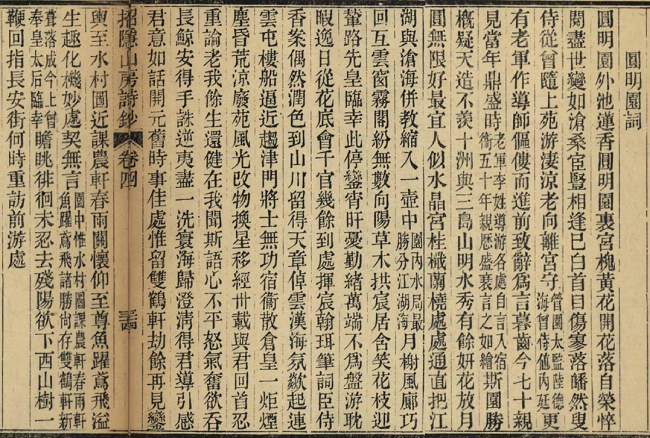 圓明園詞
圓明園外池蓮香圓明園裏宮槐黃花開花落自榮悴
閱盡世變如滄桑宦豎相逢已白首目傷寥落皤然叟
侍從曾隨上苑游淒涼老向離宮守管園太監陸德海曾侍値內廷更
有老軍作導師傴僂而進前致辭爲言暮齒今七十親
見當年鼎盛時老軍李姓導游各處自言入宿衛五十年親歷盛衰言之如繪斯園勝
槪疑天造不羨十洲與三島山明水秀有餘妍花放月
圓無限好最宜人似水晶宮桂檝蘭橈處處通直把江
湖與滄海併敎縮入一壺中園內水局最勝分江湖海月榭風廊巧
回互雲窗霧閣紛無數向陽草木拱宸居含笑花枝迎
輦路先皇臨幸此停鑾宵旰憂勤緒萬端不爲盤游耽
暇逸日從花底會千官幾餘到處揮宸翰珥筆詞臣侍
香案偶然潤色到山川留得天章倬雲漢海氛歘起連
雲屯樓船逼近趨津門將士無功宿衞散倉皇一炬煙
塵昏荒涼廢苑風光改物換星移經卅載與君回首忍
重論老我餘生還健在我聞斯語心不平怒氣奮欲吞
長鯨安得手誅逆夷盡一洗寰海歸澄淸得君導引感
君意如話開元舊時事佳處惟留雙鶴軒劫餘再見鑾
招隱山房詩鈔 卷四
輿至水村圖近課農軒春雨關懷仰至尊魚躍鳶飛溢
生趣化機妙處契無言園中惟水村圖課農軒春雨軒魚躍鳶飛諸勝尚存雙鶴軒新
葺落成今上曾奉皇太后臨幸瞻眺徘徊未忍去殘陽欲下西山樹一
鞭回指長安街何時重訪前游處